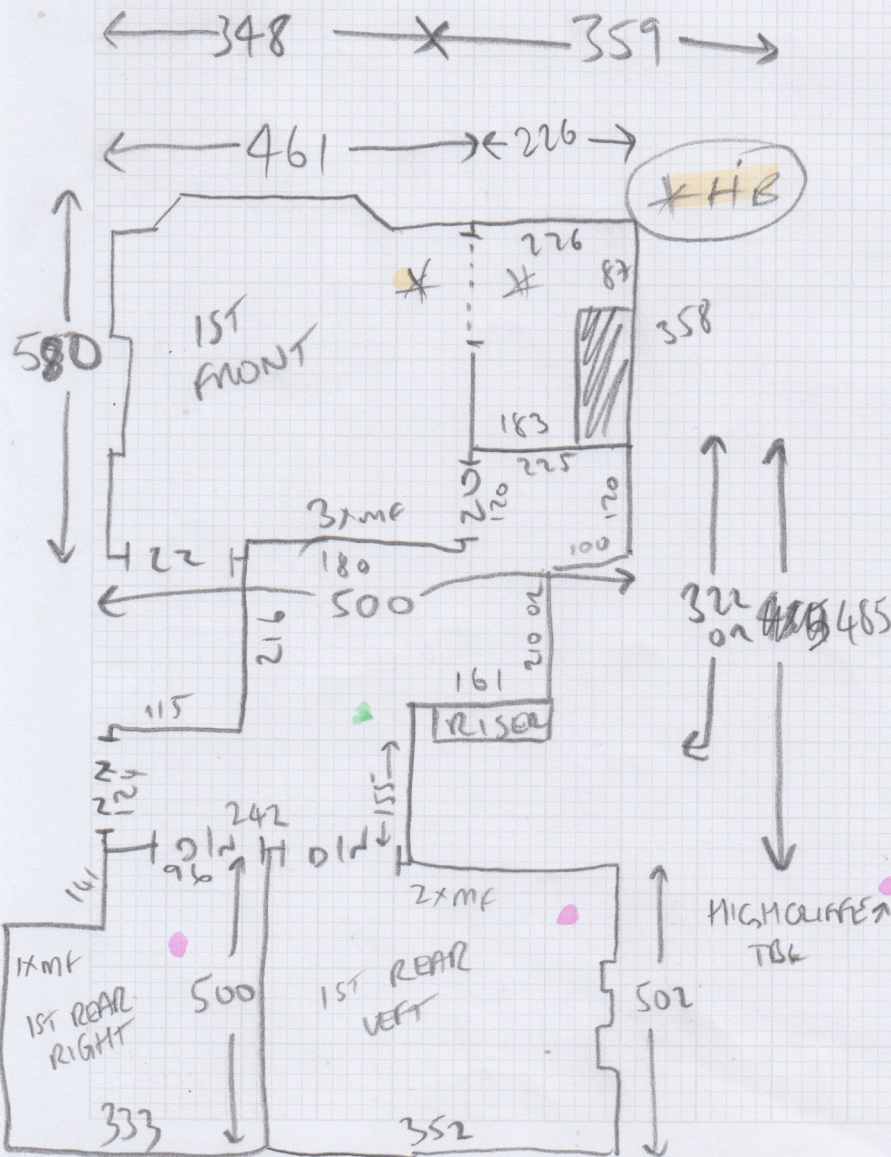 348 359
461 226
* HB
226
87
358
1ST
FRONT
580
183
225
120
120
3xmf
180
100
22
500
216
210
322
485
161
RISER
115
155
242
96
141
2xmf
HIGHCLIFFE
TBL
1xmf
1ST REAR
RIGHT
500
1ST REAR
LEFT
502
333
352